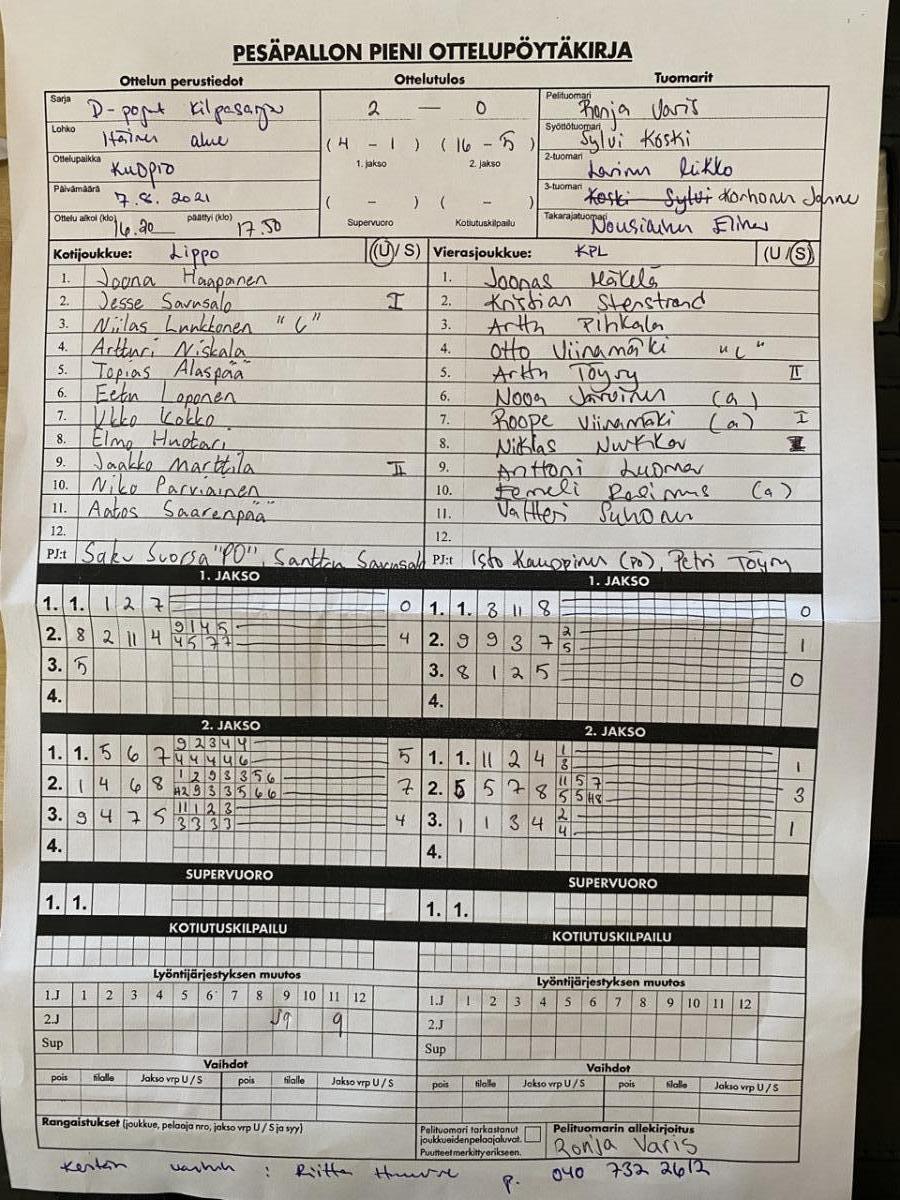 PESÄPALLON PIENI OTTELUPÖYTÄKIRJA
Ottelun perustiedot Ottelutulos Tuomarit
Sarja D-pojat Kilpasarja 2 — 0 Pelituomari Ronja Varis
Lohko Itäinen alue (4 - 1) (16 - 5) Syöttötuomari Sylvi Koski
1. jakso 2. jakso
Ottelupaikka Kuopio 2-tuomari
Päivämäärä 7.8. 2021 ( - ) ( - ) 3-tuomari Koski Sylvi Korhonen Janne
Ottelu alkoi (klo) 16.20 päättyi (klo) 17.50 Supervuoro Kotiutuskilpailu Takarajatuomari Nousiainen Elina
Kotijoukkue: Lippo (U/ S) Vierasjoukkue: KPL (U / S)
1. Joona Haapanen 1. Joonas Mäkelä
2. Jesse Savusalo I 2. Kristian Stenstrand
3. Niilas Lunkkonen "C" 3. Arttu Pihkala
4. Artturi Niskala 4. Otto Viinamäki "C"
5. Topias Alaspää 5. Arttu Töyry II
6. Eetu Loponen 6. Nooa Järvinen (a)
7. Ukko Kokko 7. Roope Viinamäki (a) I
8. Elmo Huotari 8. Niklas
9. Jaakko Marttila II 9. Anttoni Luoma
10. Niko Parviainen 10. Eemeli Rasimus (a)
11. Aatos Saarenpää 11. Valtteri Suhonen
12. 12.
PJ:t Saku Suorsa "PO", Santtu Savusalo PJ:t Isto Kauppinen (PO), Petri Töyry
1. JAKSO 1. JAKSO
1. 1. 1 2 7 0 1. 1. 3 11 8 0
2. 8 2 11 4 9 1 4 5 4 2. 9 9 3 7 2 1
4 5 7 7 5
3. 5 3. 8 1 2 5 0
4. 4.
2. JAKSO 2. JAKSO
1. 1. 5 6 7 9 2 3 4 4 5 1. 1. 11 2 4 1 1
4 4 4 4 6 3
2. 1 4 6 8 1 2 9 3 3 5 6 7 2. 5 5 7 8 11 5 7 3
2 9 3 3 5 6 6 5 5 8
3. 9 4 7 5 11 1 2 3 4 3. 1 1 3 4 2 1
3 3 3 3 4
4. 4.
SUPERVUORO SUPERVUORO
1. 1. 1. 1.
KOTIUTUSKILPAILU KOTIUTUSKILPAILU
Lyöntijärjestyksen muutos Lyöntijärjestyksen muutos
1.J 1 2 3 4 5 6 7 8 9 10 11 12 1.J 1 2 3 4 5 6 7 8 9 10 11 12
2.J 9 2.J
Sup Sup
Vaihdot Vaihdot
pois tilalle Jakso vrp U / S pois tilalle Jakso vrp U / S pois tilalle Jakso vrp U / S pois tilalle Jakso vrp U / S
Rangaistukset (joukkue, pelaaja nro, jakso vrp U / S ja syy) Pelituomari tarkastanut joukkueidenpelaajaluvat. Puutteet merkitty erikseen. Pelituomarin allekirjoitus
Ronja Varis
: Riitta p. 040 732 2612